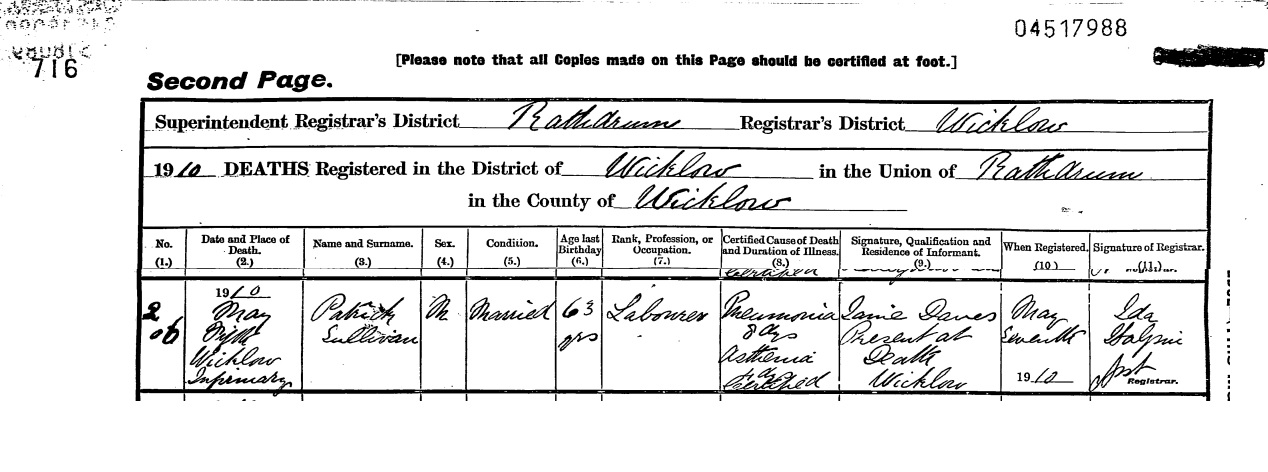 04517988
716
[Please note that all Copies made on this Page should be certified at foot.]
Second Page.
Superintendent Registrar's District Rathdrum Registrar's District Wicklow
1910 DEATHS Registered in the District of Wicklow in the Union of Rathdrum
in the County of Wicklow
No. (1.)
Date and Place of Death. (2.)
Name and Surname. (3.)
Sex. (4.)
Condition. (5.)
Age last Birthday (6.)
Rank, Profession, or Occupation. (7.)
Certified Cause of Death and Duration of Illness. (8.)
Signature, Qualification and Residence of Informant. (9.)
When Registered. (10.)
Signature of Registrar. (11.)
1910
May
Fifth
Wicklow
Infirmary
Patrick
Sullivan
M
Married
63
yrs
Labourer
Pneumonia
8 dys
Asthenia
dys
Certified
Davies
Present at
Death
Wicklow
May
Seventh
1910
Ida
Halpin
Asst
Registrar.